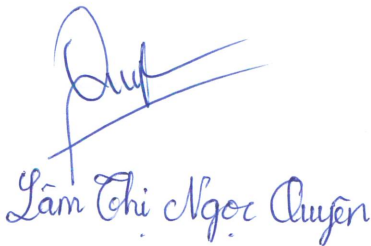 Quyên
Lâm Thị Ngọc Quyên